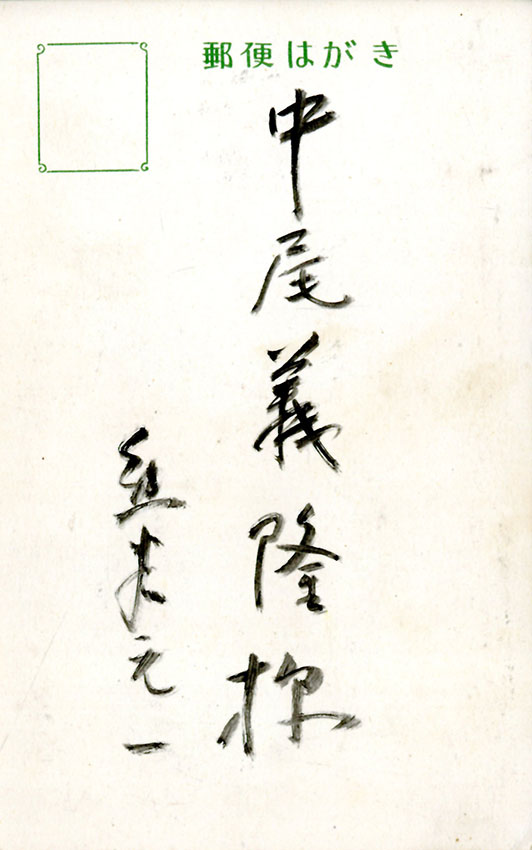 郵便はがき
中尾義隆様
元一